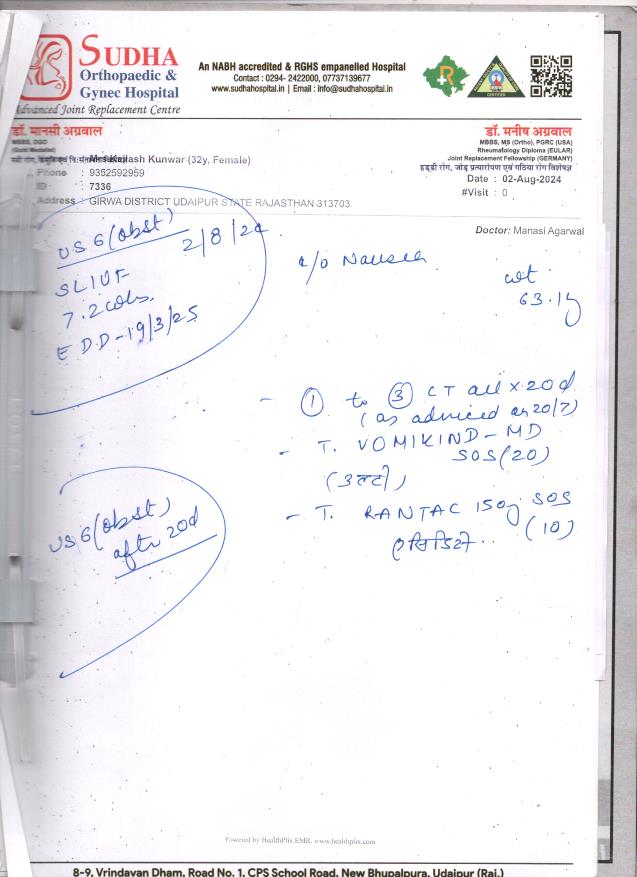 SUDHA
Orthopaedic &
Gynec Hospital
Advanced Joint Replacement Centre
An NABH accredited & RGHS empanelled Hospital
Contact : 0294- 2422000, 07737139677
www.sudhahospital.in | Email : info@sudhahospital.in
डॉ. मानसी अग्रवाल
MBBS, DGO
(Gold Medalist)
डॉ. मनीष अग्रवाल
MBBS, MS (Ortho), PGRC (USA)
Rheumatology Diploma (EULAR)
Joint Replacement Fellowship (GERMANY)
हड्डी रोग, जोड़ प्रत्यारोपण एवं गठिया रोग विशेषज्ञ
Kailash Kunwar (32y, Female)
Phone : 9352592959
ID : 7336
Address : GIRWA DISTRICT UDAIPUR STATE RAJASTHAN 313703
Date : 02-Aug-2024
#Visit : 0
Doctor: Manasi Agarwal
USG (obst)
2/8/24
SLIUF
7.2
EDD-19/3/25
c/o Nausea
wt
63.1
- ① to ③ CT all x 20d
(as adviced on 20/7)
- T. VOMIKIND-MD
SOS (20)
(उल्टी)
- T. RANTAC 150 SOS
(10)
एसिडिटी
USG (obst)
after 20d
Powered by HealthPlix EMR. www.healthplix.com
8-9, Vrindavan Dham, Road No. 1, CPS School Road, New Bhupalpura, Udaipur (Raj.)